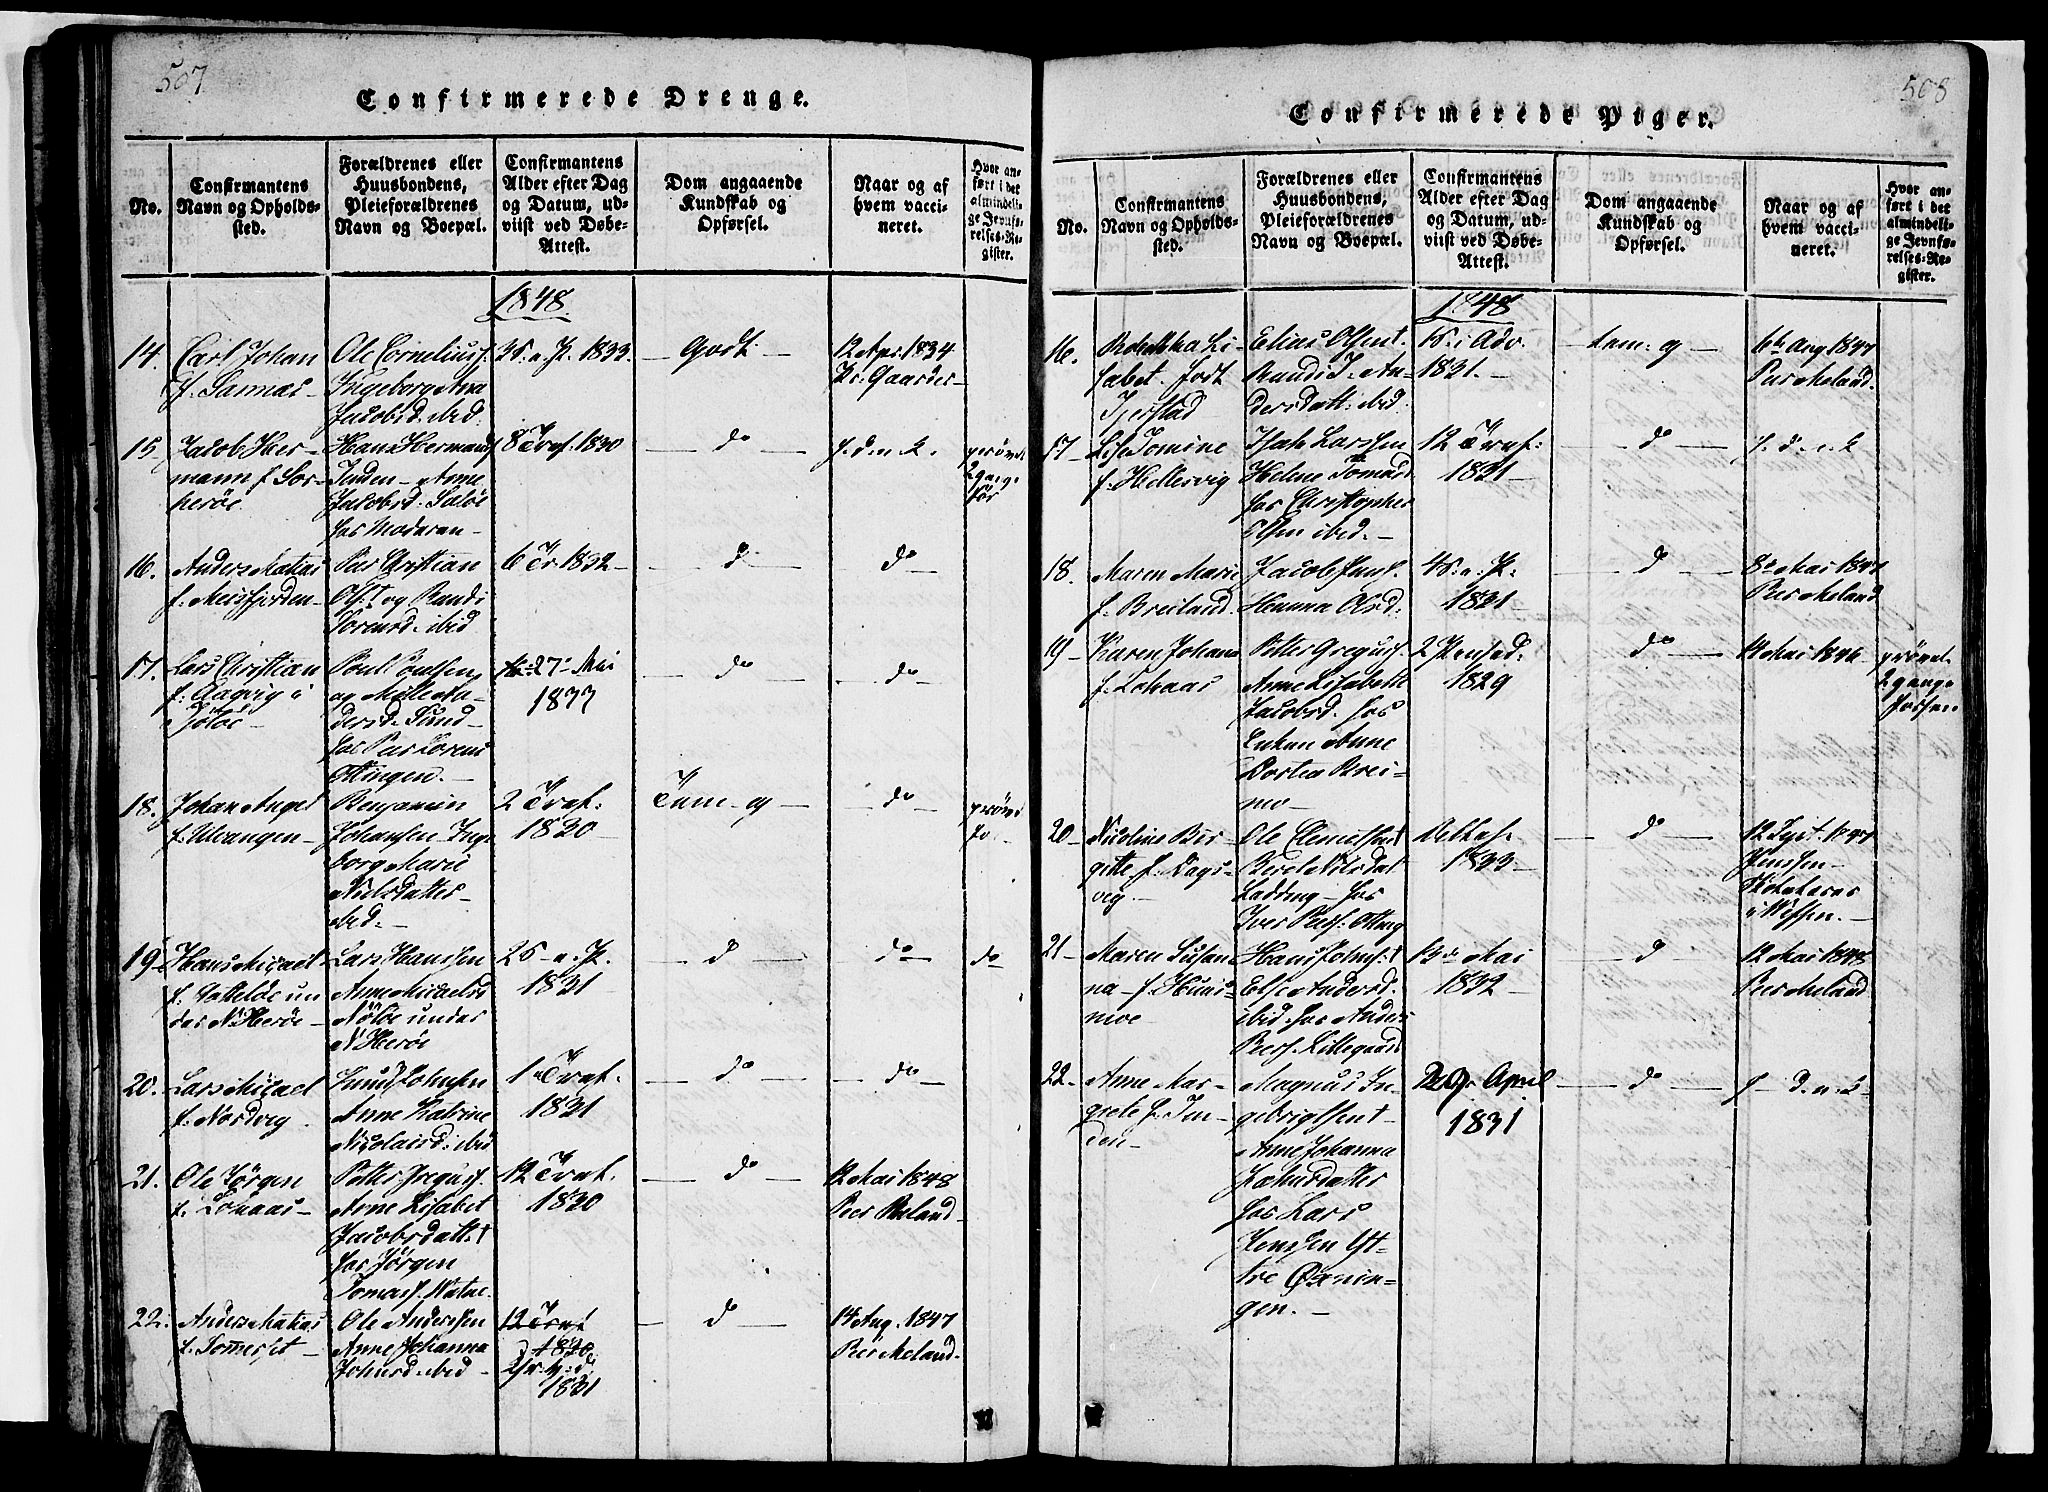 507
Confirmerede Drenge.
No.
Confirmantens
Navn og Opholds-
sted.
Forældrenes eller
Huusbondens,
Pleieforældrenes
Navn og Boepæl.
Confirmantens
Alder efter Dag
og Datum, ud-
viist ved Døbe-
Attest.
Dom angaaende
Kundskab og
Opførsel.
Naar og af
hvem vacci-
neret.
Hvor an-
ført i det
almindeli-
ge Jevnfø-
relses-Re-
gister.
1848.
14. Carl Johan
f. Sannæs
Ole Cornelius
Ingeborg Ana
Jacobsd. ibid.
3 S. e. P. 1833
Godt
12 Apr. 1834
Kr: Gaarder
15. Jacob Her-
mann f. Sor-
herøe
Hans Hermands
Inden Anne
Jacobsd. Saløe
hos Moderen
8 Traf. 1830
do
f. d. n. k.
prövet
2 gange
för
16. Anders Matias
f. Meisfjorden
Peer Christian
Ols. og Randi
Sorensd. ibid
6 Tr 1832
do
do
17. Lars Christian
f. Aagvig i
Poul Poulsen
og Mette An-
dersd. Sund
hos Peer Lorens
Ottingen.
27 Mai
1833
do
do
18. Johan Anger
f. Ulvangen
Benjamin
Johansen Inge-
borg Marie
Nielsdatter
ibid.
2 Traf:
1830
Tem. og
do
prövet
fo
19. Hans Micael
f. un
der N Herøe
Lars Hanssen
Anne Micaelsd
under
N Herøe
2 S. e. P.
1831
do
do
do
20. Lars Micael
f. Nordvig
Johnsen
Anne Katrine
Nicolaisd. ibid
1 Traf.
1831
do
do
21. Ole Jörgen
f. Lonaas
Petter Gregus.
Anne Lisabet
Jacobsdatt.
hos Jörgen
Tomass. Watne
12 Traf.
1830
do
12 Mai 1848
Peer Meland
22. Anders Matias
f. Tomerset
Ole Anderssen
Anne Johanna
Johnsd. ibid
12 Traf
1830
1831
do
14 Aug. 1847
Peer Meland.
508
Confirmerede Piger.
No.
Confirmantens
Navn og Opholds-
sted.
Forældrenes eller
Huusbondens,
Pleieforældrenes
Navn og Boepæl.
Confirmantens
Alder efter Dag
og Datum, ud-
viist ved Døbe-
Attest.
Dom angaaende
Kundskab og
Opførsel.
Naar og af
hvem vacci-
neret.
Hvor an-
ført i det
almindeli-
ge Jevnfø-
relses-Re-
gister.
1848
16. Rebekka Li-
sabet. født
Elias Olsen
Randi J. An-
dersdatt: ibid.
1 S. i Adv.
1831.
tem: og
6te Aug 1847
Peer Meland.
17 Lise Tomine
f. Hellesvig
Isak Larssen
Helene Tomasd.
hos Christopher
Olsen ibid.
12 Traf:
1831
do
f. d. n. k
18. Maren Marie
f. Breiland
Jacob Jens.
Hemma Olsd.
4 S. e. P.
1831
do
8de Mai 1848
Peer Meland
19 Karen Johana
f. Lonaas
Petter Gregus.
Anne Lisabeth
Jacobsd. hos
Enken Anne
Dortea Brei-
mo
1829
do
14 Mai 1846
prövet
2 gange
20 Nicoline Ber-
gitte f. Dags-
vig
Ole Clemetsen
Beret Nilsdat
hos
Iver Peers. Otting
1833
do
12 Sept. 1847
Jenssen
i Vefsen.
21 Maren Susan
na f. Huus-
moe
Hans Johns.
Else Andersd.
ibid. hos Anders
Peers. Lillegaard
13de Mai
1832
do
12 Mai 1848
Peer Meland
22. Anne Mar-
grete f. In-
den
Magnus In-
gebrigtsen
Anne Johanna
Zakarsdatter
hos Lars
Jenssen Yt-
tre Øxnin-
gen.
29. April
1831
do
f. d. n. k